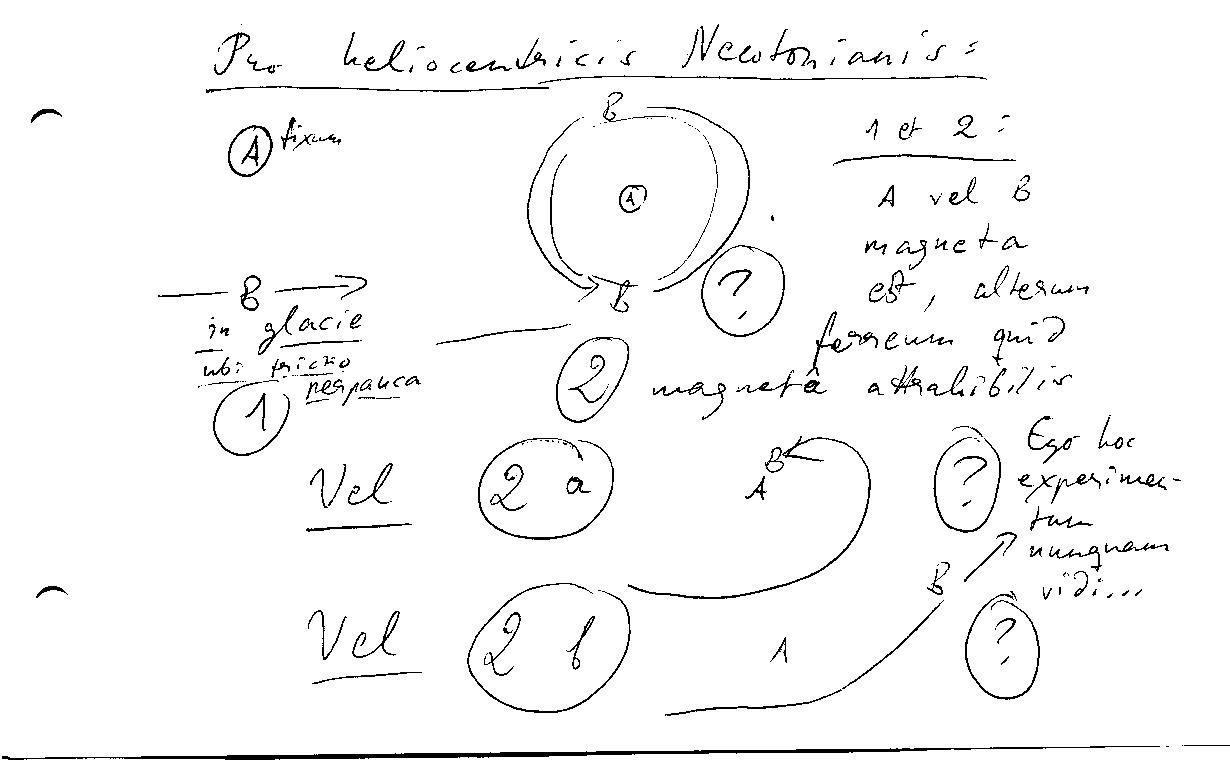 Pro heliocentricis Newtonianis:
A fixum
B
A
1 et 2:
A vel B
magneta
est, alterum
ferreum quid
magnetâ attrahibilis
B
in glacie
ubi frictio
perpauca
1
B
?
2
Vel
2 a
B
A
?
Ego hoc
experimen-
tum
nunquam
vidi...
Vel
2 b
A
B
?